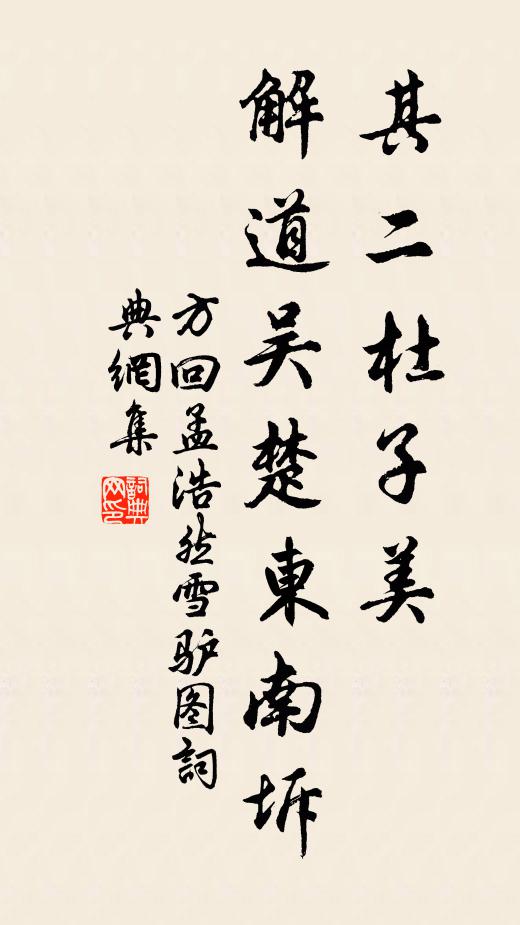 其二杜子美
解道吴楚東南坼
方回孟浩然雪驴图詞
典網集
詞典
网印